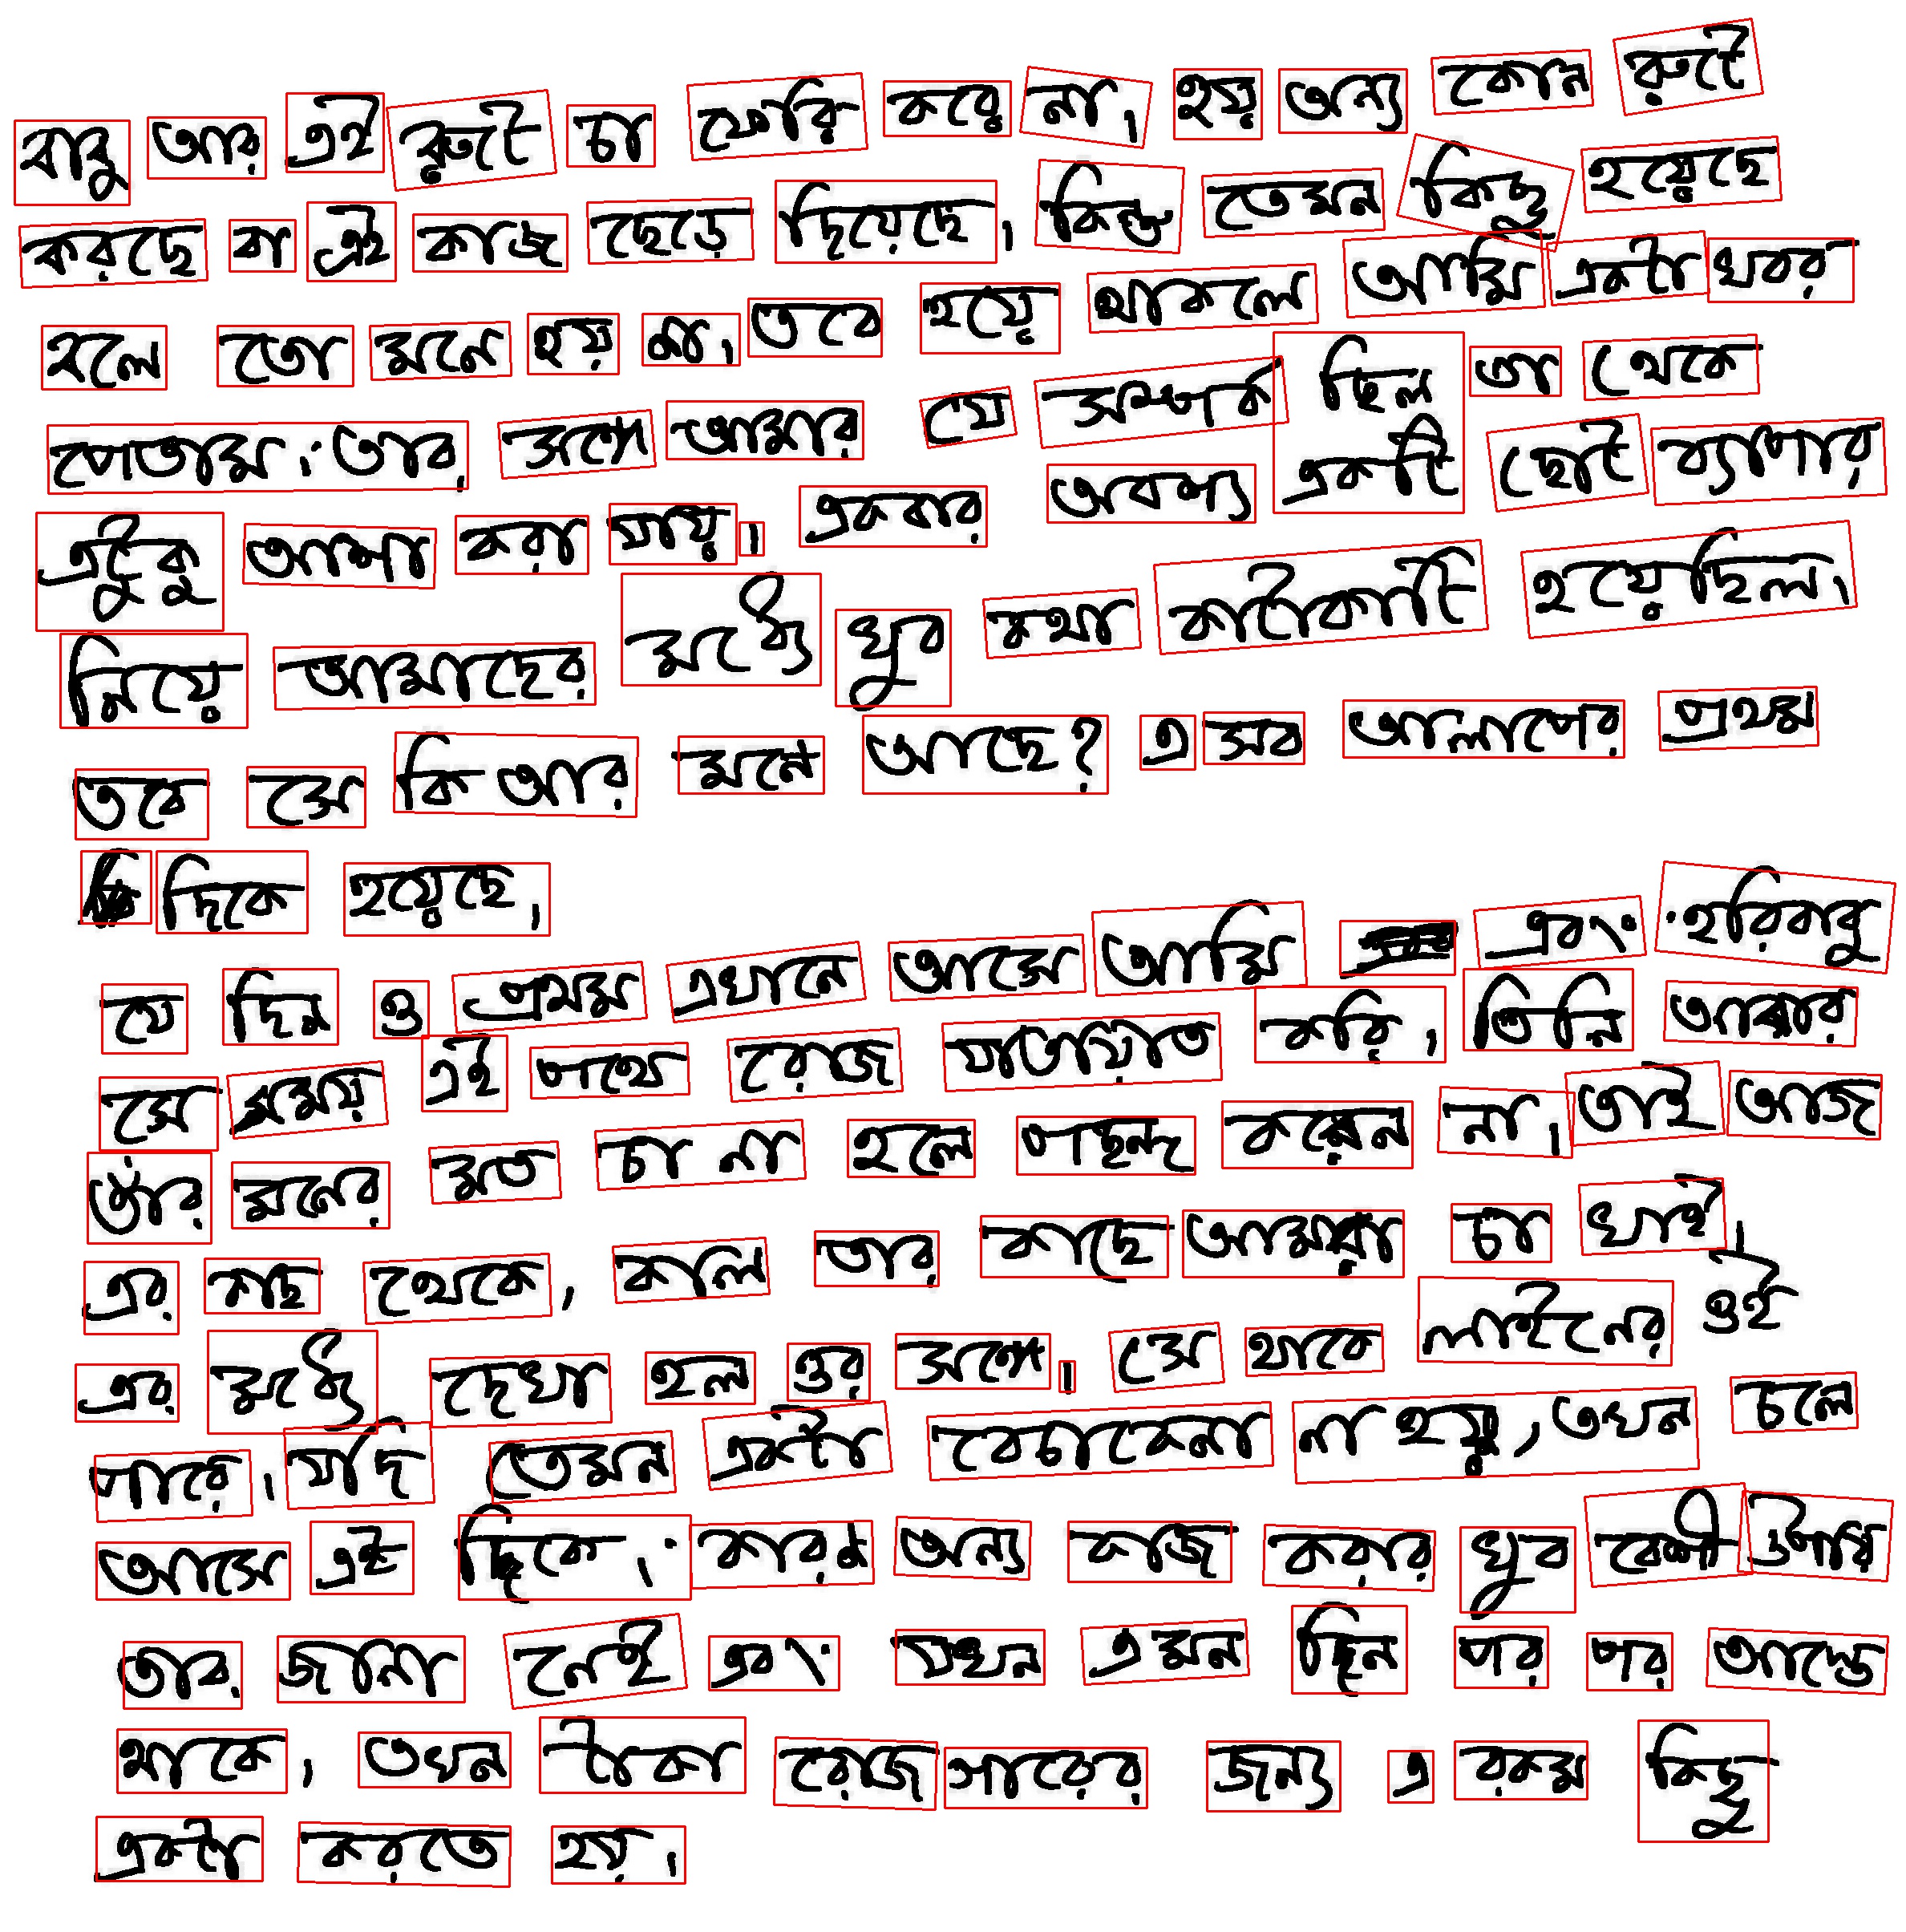 বাবু আর এই রুটে চা ফেরি করে না। হয় অন্য কোন রুটে
করছে বা এই কাজ ছেড়ে দিয়েছে। কিন্তু তেমন কিছু হয়েছে
হলে তো মনে হয় না। তবে হয়ে থাকলে আমি একটা খবর
পেতাম। তার সঙ্গে আমার যে সম্পর্ক ছিল তা থেকে
এটুকু আশা করা যায়। একবার অবশ্য একটি ছোট ব্যাপার
নিয়ে আমাদের মধ্যে খুব কথা কাটাকাটি হয়েছিল।
তবে সে কি আর মনে আছে? এ সব আলাপের প্রথম
দিকে হয়েছে।
যে দিন ও প্রথম এখানে আসে আমি এবং হরিবাবু
সে সময় এই পথে রোজ যাতায়াত করি। তিনি আবার
তাঁর মনের মত চা না হলে পছন্দ করেন না। তাই আজ
এর কাছ থেকে, কাল তার কাছে আমরা চা খাই।
এর মধ্যে দেখা হল ওর সঙ্গে। সে থাকে লাইনের ওই
পারে। যদি তেমন একটা বেচাকেনা না হয়, তখন চলে
আসে এই দিকে। কারণ অন্য কাজ করার খুব বেশী উপায়
তার জানা নেই এবং যখন এমন দিন পর পর আসতে
থাকে, তখন টাকা রোজগারের জন্য এ রকম কিছু
একটা করতে হয়।